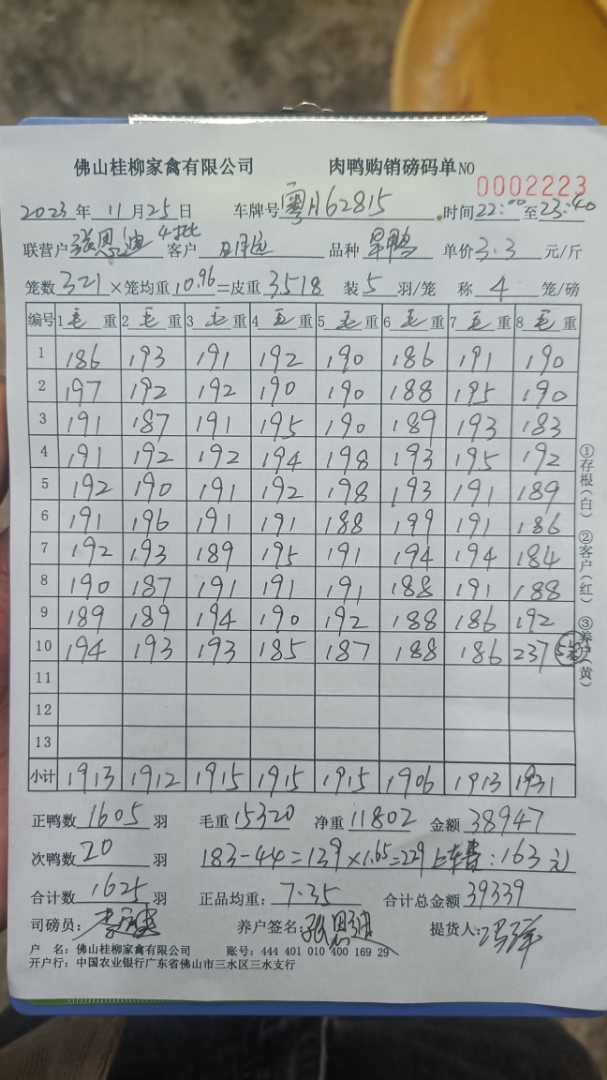 佛山桂柳家禽有限公司 肉鸭购销磅码单 NO 0002223
2023 年 11 月 25 日 车牌号 粤A62815 时间 22:00 至 23:40
联营户 张恩迪 4批 客户 品种 旱鸭 单价 3.3 元/斤
笼数 321 ×笼均重 10.96 =皮重 3518 装 5 羽/笼 称 4 笼/磅
编号 1 毛 重 2 毛 重 3 毛 重 4 毛 重 5 毛 重 6 毛 重 7 毛 重 8 毛 重
1 186 193 191 192 190 186 191 190
2 197 192 192 190 190 188 195 190
3 191 187 191 195 190 189 193 183
4 191 192 192 194 198 193 195 192
5 192 190 191 192 198 193 191 189
6 191 196 191 191 188 199 191 186
7 192 193 189 195 191 194 194 184
8 190 187 191 191 191 188 191 188
9 189 189 194 190 192 188 186 192
10 194 193 193 185 187 188 186 237 5笼
11
12
13
小计 1913 1912 1915 1915 1915 1906 1913 1931
正鸭数 1605 羽 毛重 15320 净重 11802 金额 38947
次鸭数 20 羽 183-44=139×1.65=229 上车费:163元
合计数 1625 羽 正品均重: 7.35 合计总金额 39339
司磅员: 养户签名: 张恩迪 提货人:
户 名: 佛山桂柳家禽有限公司 账号: 444 401 010 400 169 29
开户行: 中国农业银行广东省佛山市三水区三水支行
①存根(白) ②客户(红) ③养户(黄)